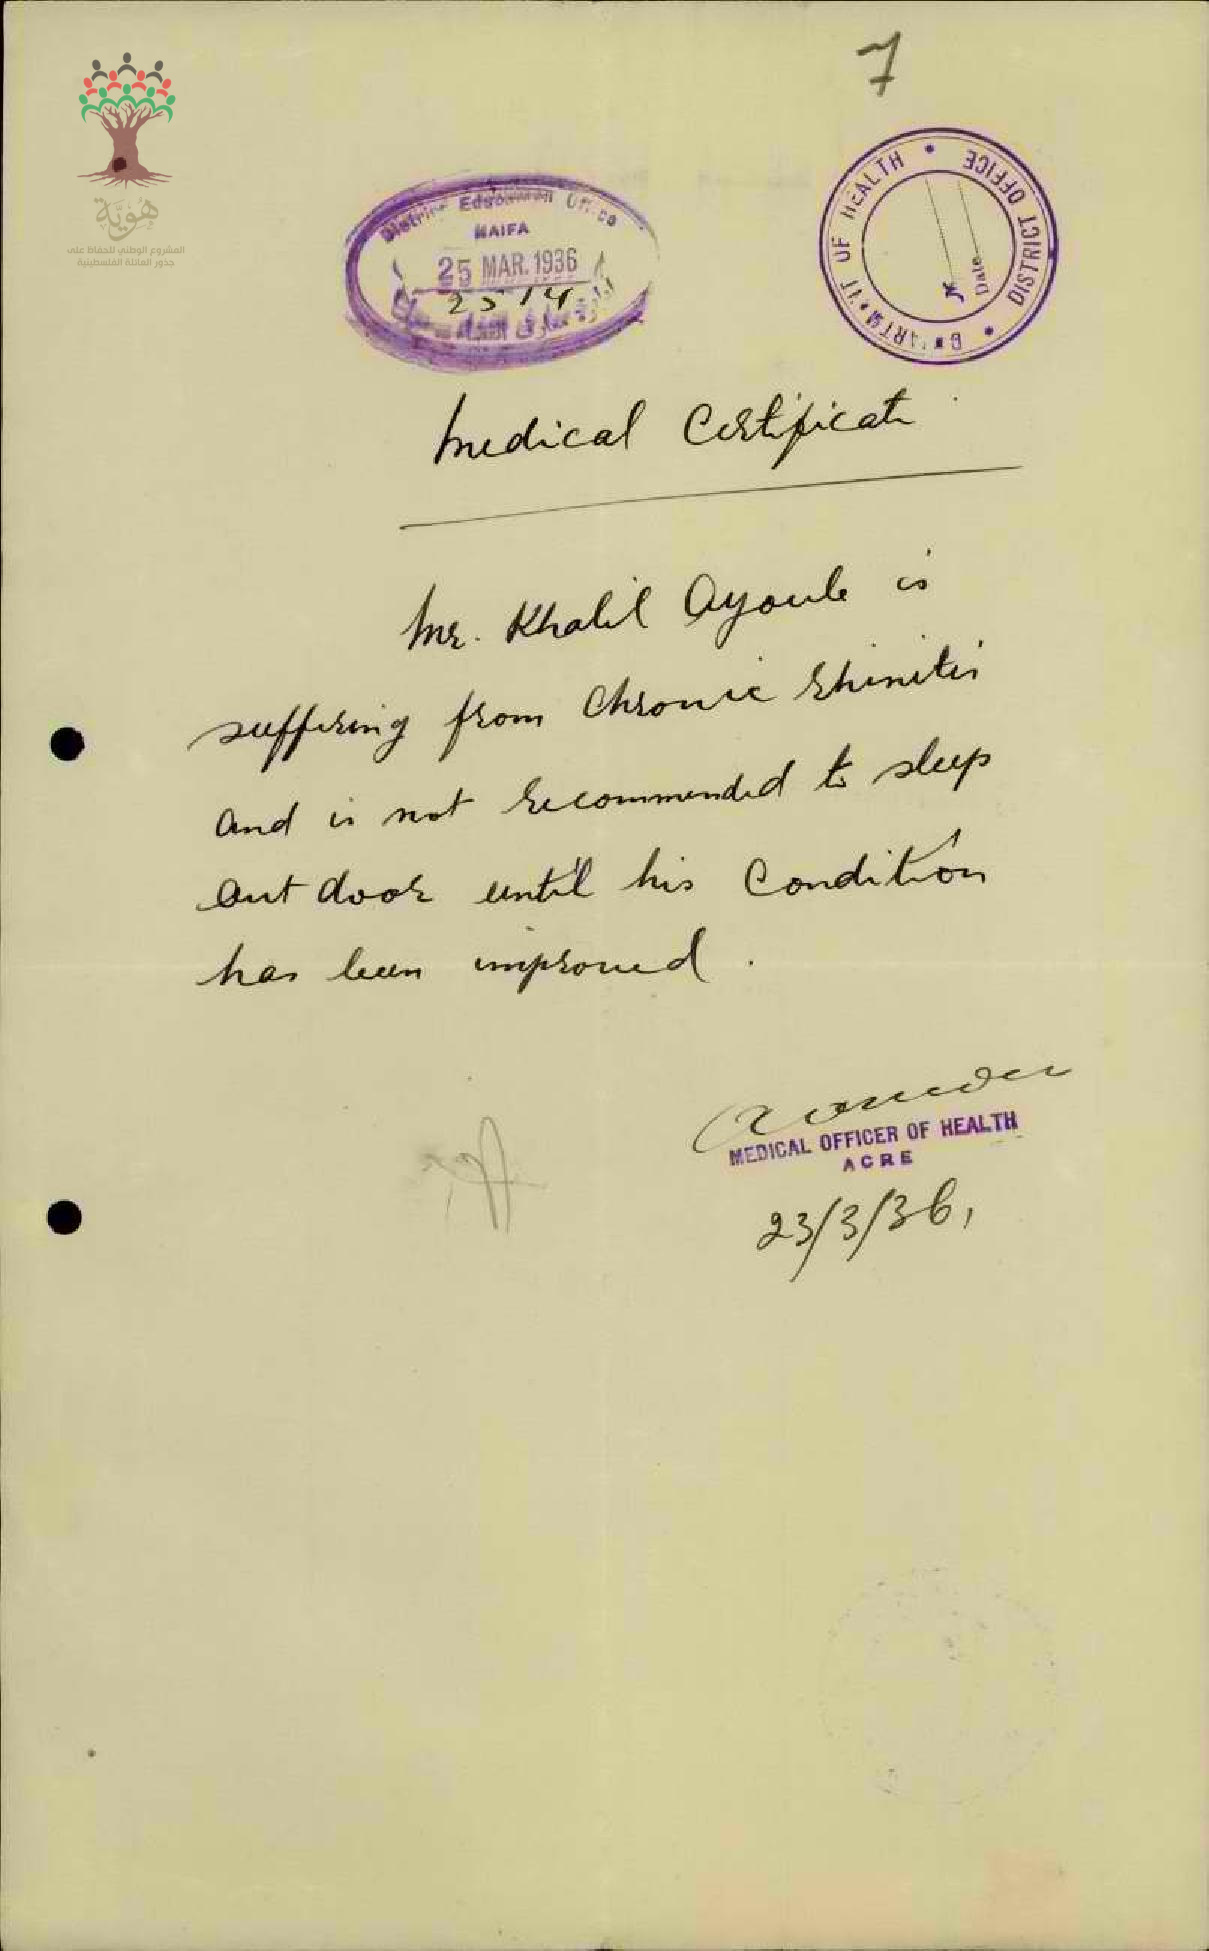 7
هُوِيَّة
المشروع الوطني للحفاظ على
جذور العائلة الفلسطينية
District Education Office
HAIFA
25 MAR. 1936
2514
DEPARTMENT OF HEALTH • DISTRICT OFFICE •
Date
Medical Certificate
Mr. Khalil Ayoub is
suffering from Chronic rhinitis
and is not recommended to sleep
out door until his Condition
has been improved.
MEDICAL OFFICER OF HEALTH
ACRE
23/3/36,